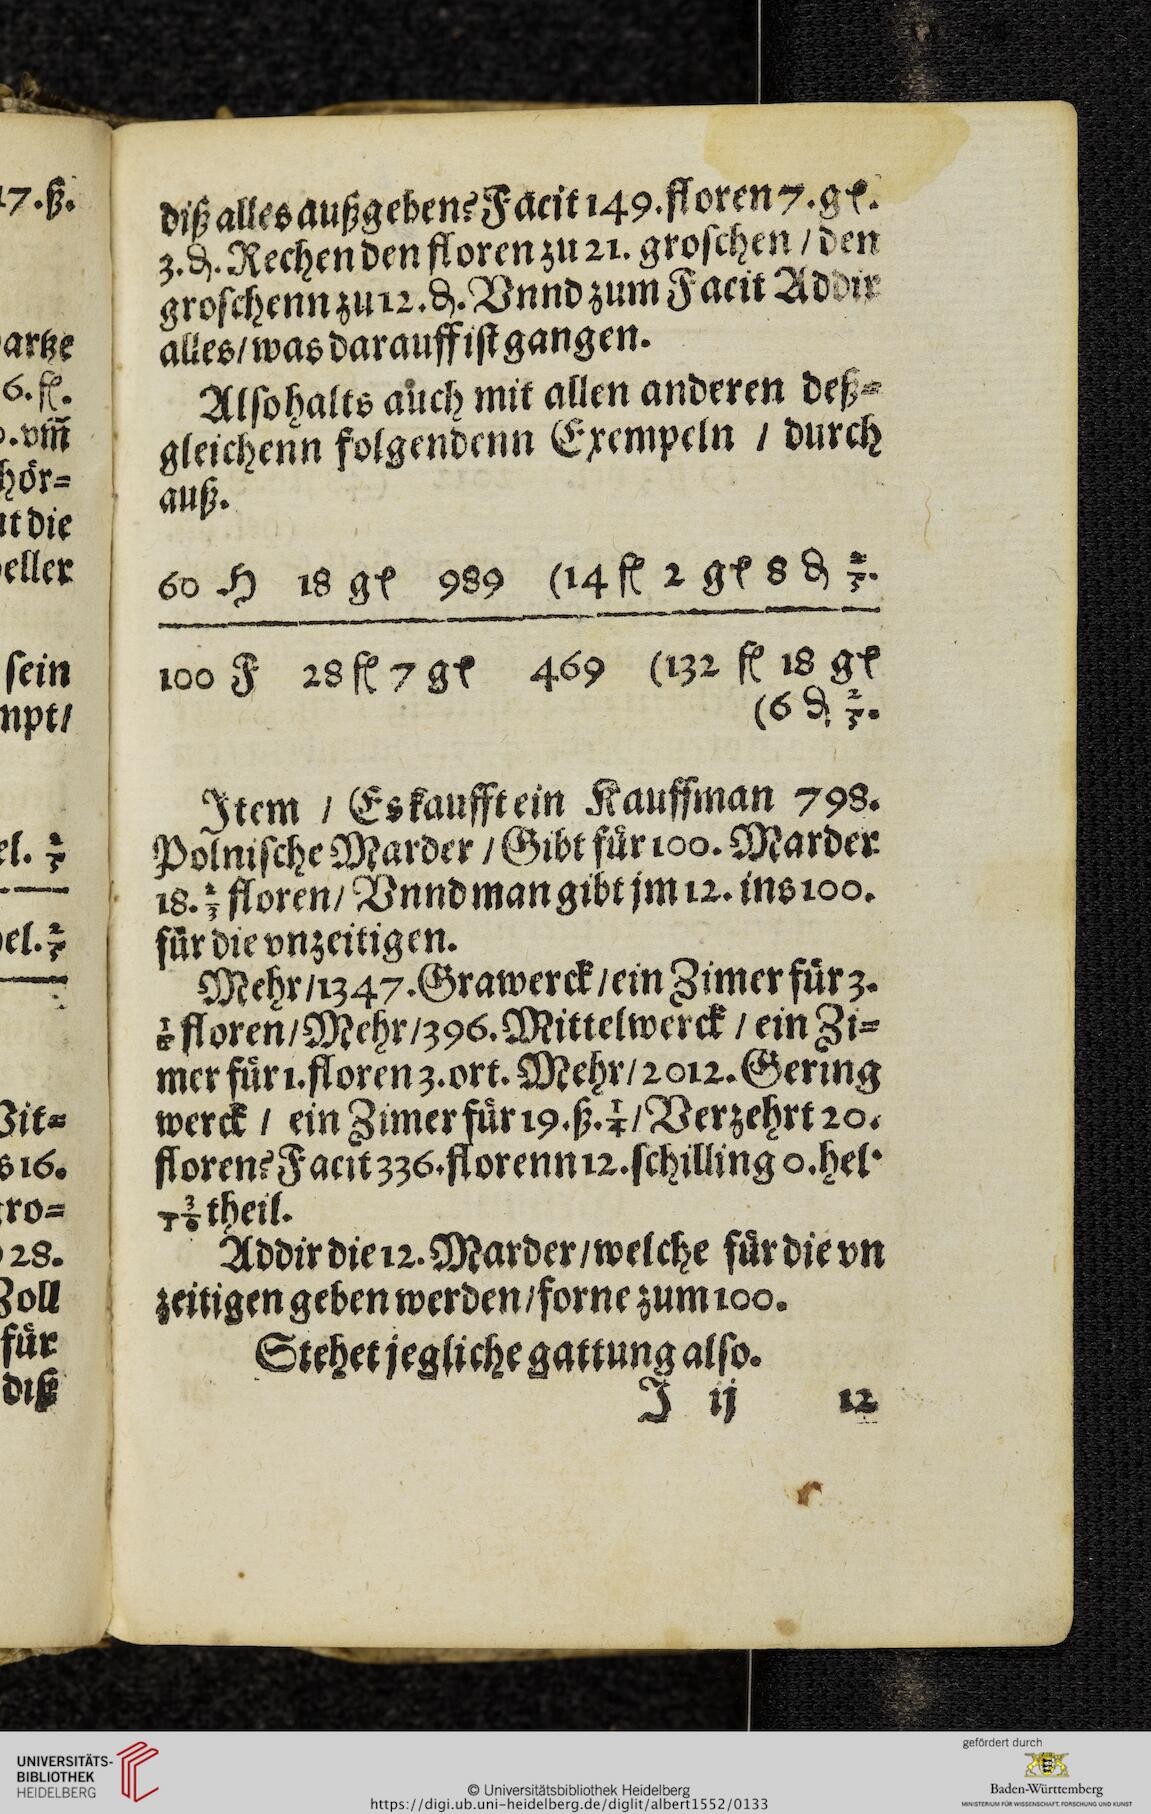 17.ß.
artze
6.fl.
.vm̃
hör=
ut die
eller
sein
mpt/
el. 2/5
el. 2/5
Vit=
s 16.
gro=
28.
Zoll
für
diß
diß alles außgeben? Facit 149. floren 7. gℓ.
3. ₰. Rechen den floren zu 21. groschen / den
groschenn zu 12. ₰. Vnnd zum Facit Addir
alles / was darauff ist gangen.
Also halts auch mit allen anderen deß=
gleichenn folgendenn Exempeln / durch
auß.
60 H 18 gℓ 989 (14 fl 2 gℓ 8 ₰ 2/5.
100 F 28 fl 7 gℓ 469 (132 fl 18 gℓ
(6 ₰ 2/5.
Item / Es kaufft ein Kauffman 798.
Polnische Marder / Gibt für 100. Marder
18. 2/3 floren / Vnnd man gibt jm 12. ins 100.
für die vnzeitigen.
Mehr / 1347. Grawerck / ein Zimer für 3.
floren / Mehr / 396. Mittelwerck / ein Zi=
mer für 1. floren 3. ort. Mehr / 2012. Gering
werck / ein Zimer für 19. ß. 1/4 / Verzehrt 20.
floren? Facit 336. florenn 12. schilling 0. hel.
theil.
Addir die 12. Marder / welche für die vn
zeitigen geben werden / forne zum 100.
Stehet jegliche gattung also.
J ij 12
UNIVERSITÄTS-
BIBLIOTHEK
HEIDELBERG
© Universitätsbibliothek Heidelberg
https://digi.ub.uni-heidelberg.de/diglit/albert1552/0133
gefördert durch
Baden-Württemberg
MINISTERIUM FÜR WISSENSCHAFT, FORSCHUNG UND KUNST